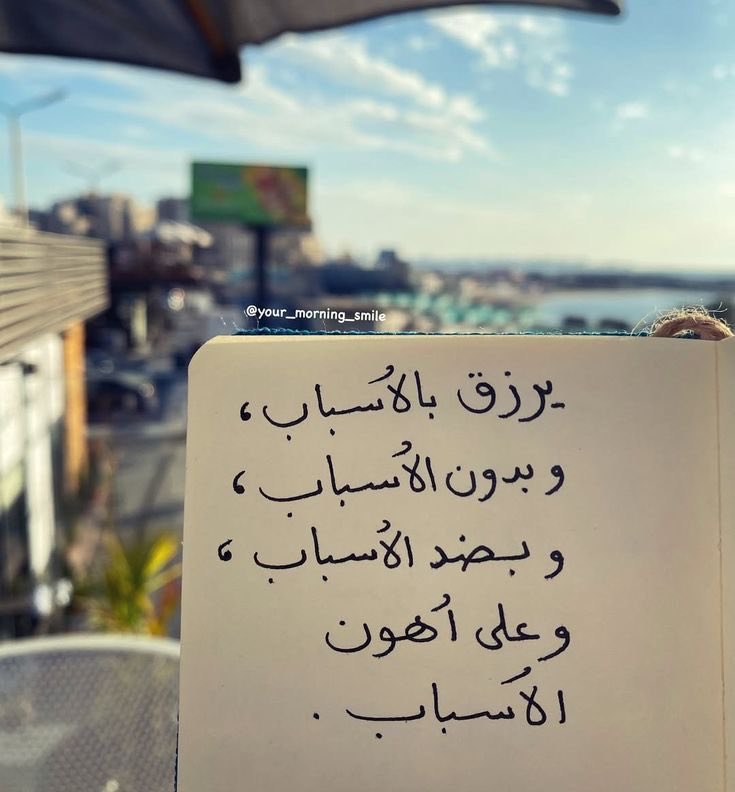 @your_morning_smile
يرزق بالأسباب،
و بدون الأسباب،
و بضد الأسباب،
و على أهون
الأسباب.